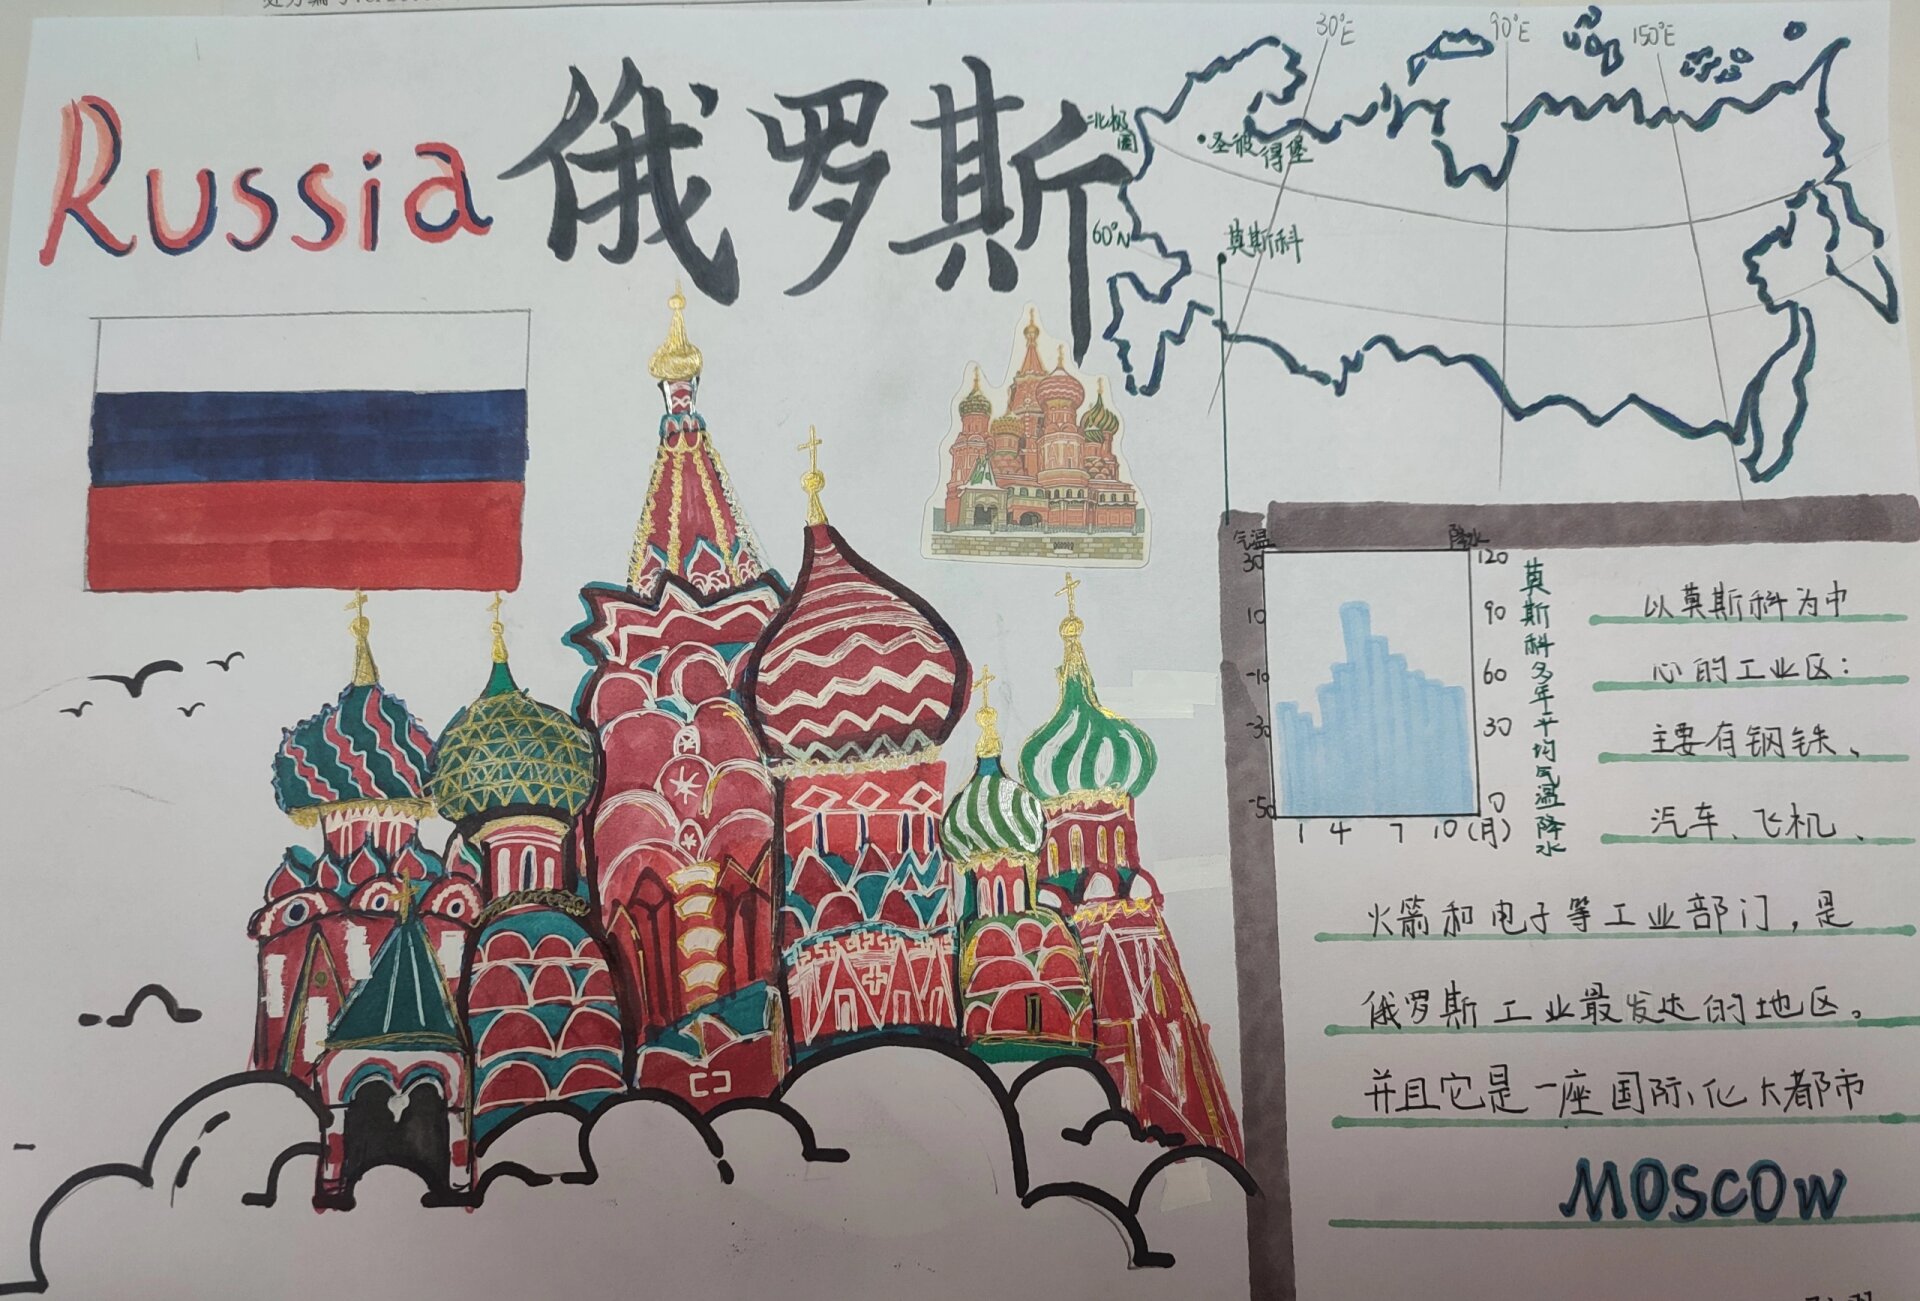 Russia 俄罗斯
30°E
90°E
150°E
北极圈
圣彼得堡
60°N
莫斯科
气温
降水
30
10
-10
-30
-50
120
90
60
30
0
1 4 7 10 (月)
莫斯科多年平均气温降水
以莫斯科为中
心的工业区：
主要有钢铁、
汽车、飞机、
火箭和电子等工业部门，是
俄罗斯工业最发达的地区。
并且它是一座国际化大都市
MOSCOW